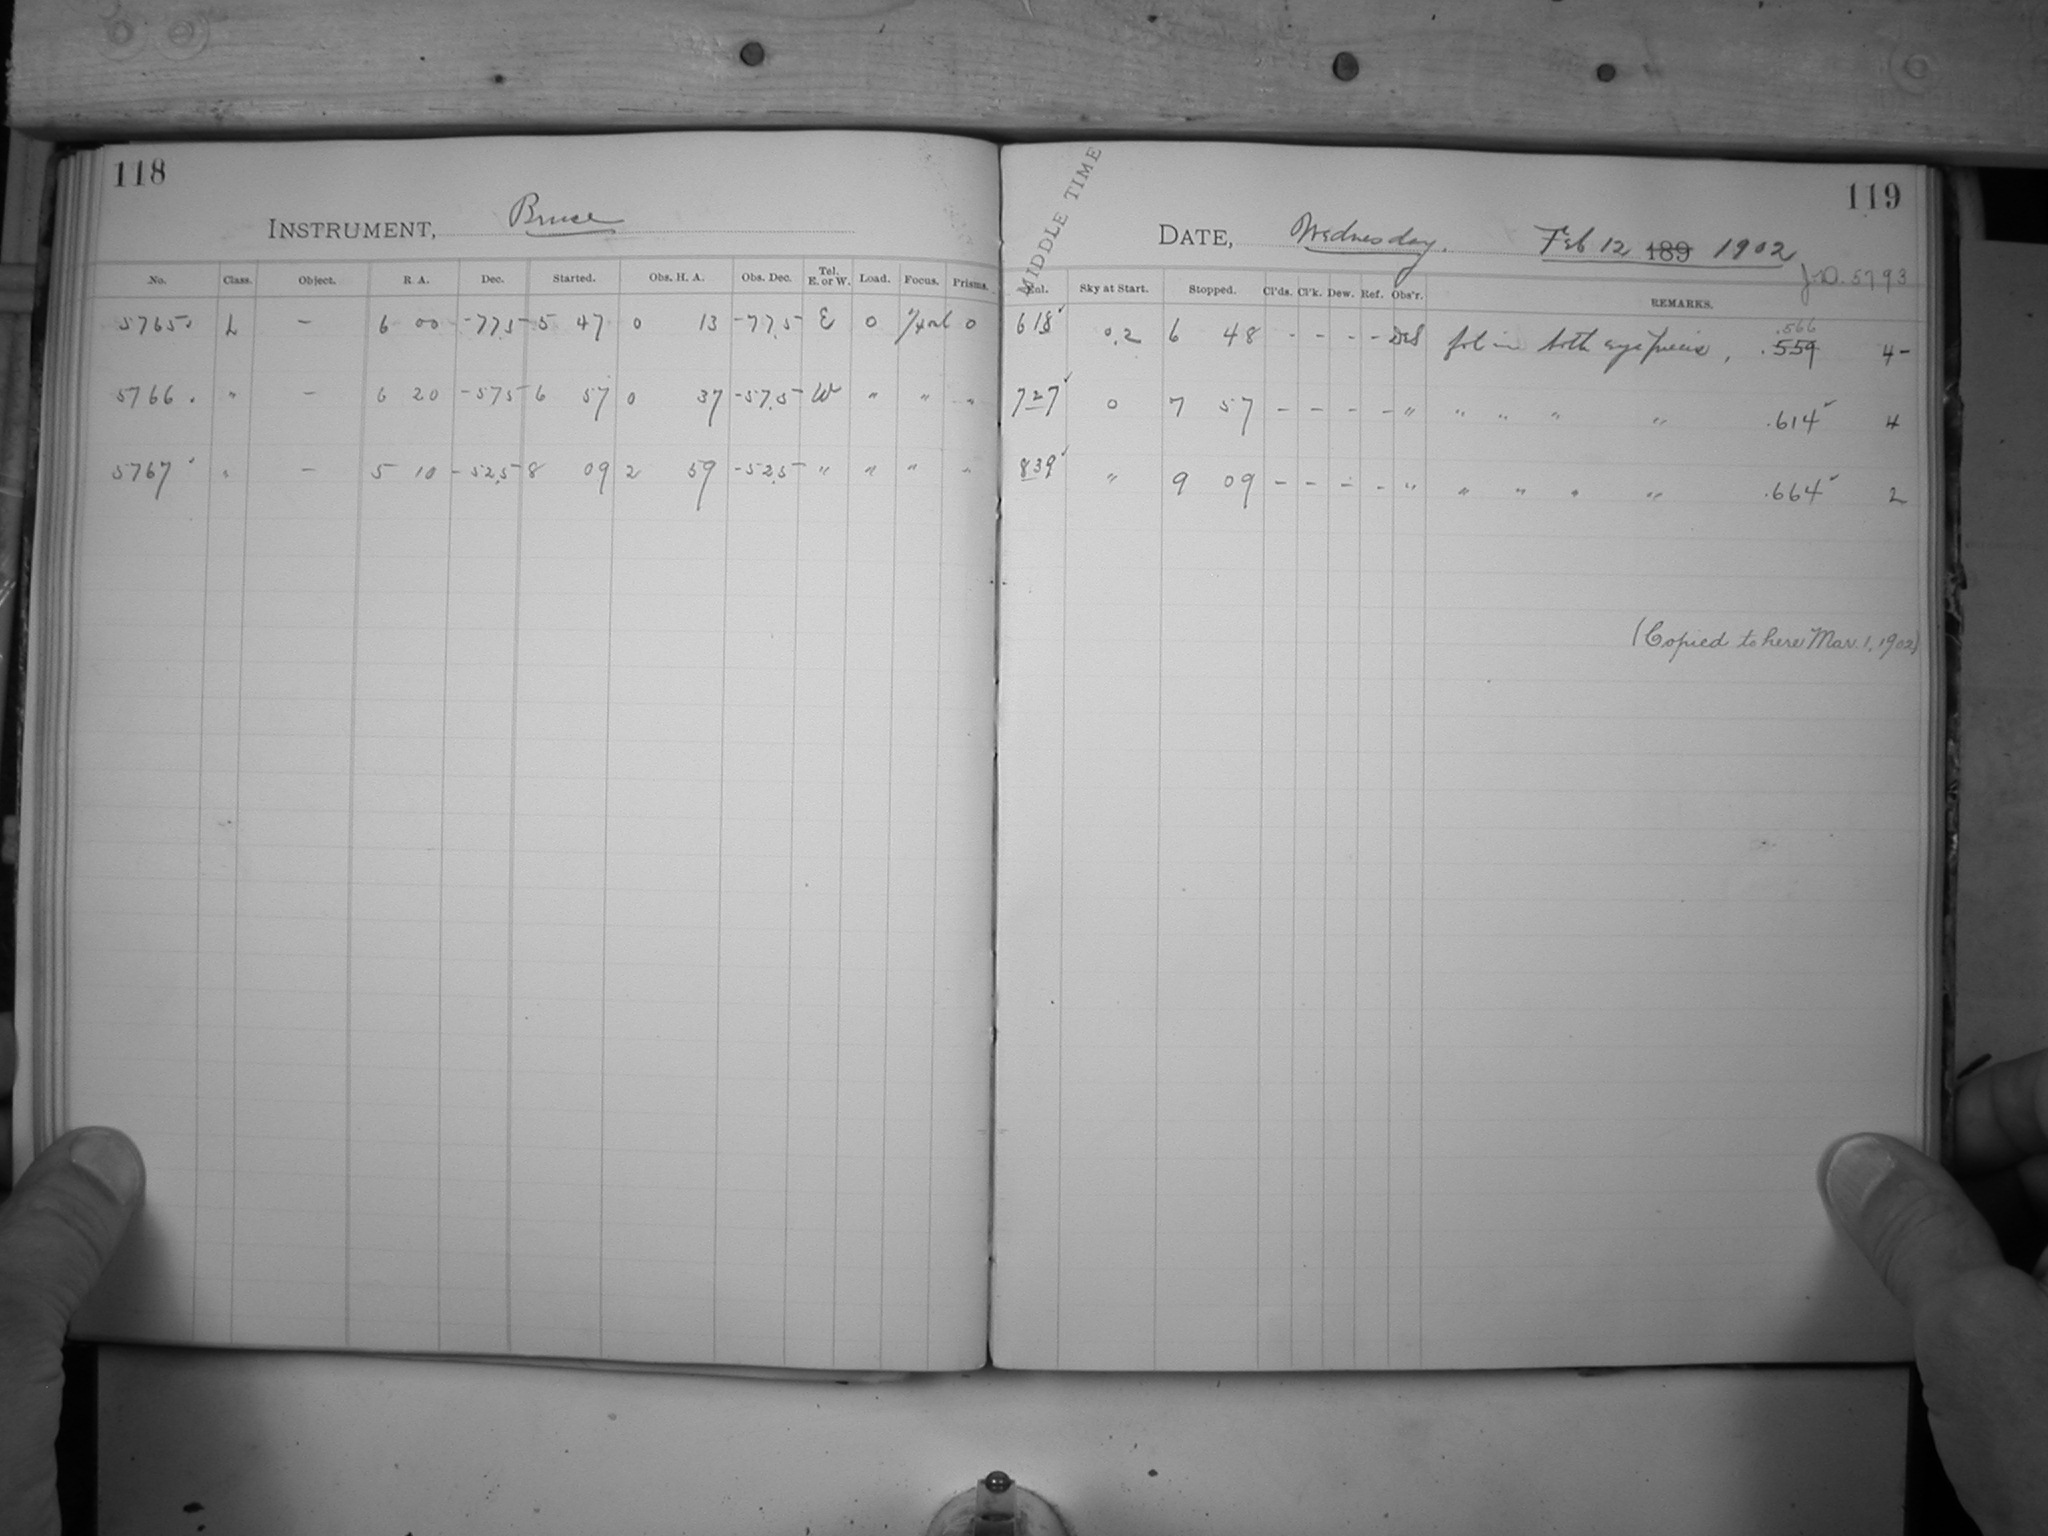 118
INSTRUMENT, Bruce
No. Class. Object. R. A. Dec. Started. Obs. H. A. Obs. Dec. Tel. E. or W. Load. Focus. Prisms.
5765. L – 6 00 -77.5 5 47 0 13 -77.5 E 0 0
5766. " – 6 20 -57.5 6 57 0 37 -57.5 W " " "
5767 " – 5 10 -52.5 8 09 2 59 -52.5 " " " "
119
MIDDLE TIME
DATE, Wednesday. Feb 12 189 1902
J.D. 5793
Enl. Sky at Start. Stopped. Cl'ds. Cl'k. Dew. Ref. Obs'r. REMARKS.
.566
618 0.2 6 48 - - - - fol in both eyepieces, .559 4-
727 0 7 57 - - - - " " " " " .614 4
839 " 9 09 - - - - " " " " " .664 2
(Copied to here Mar. 1, 1902)